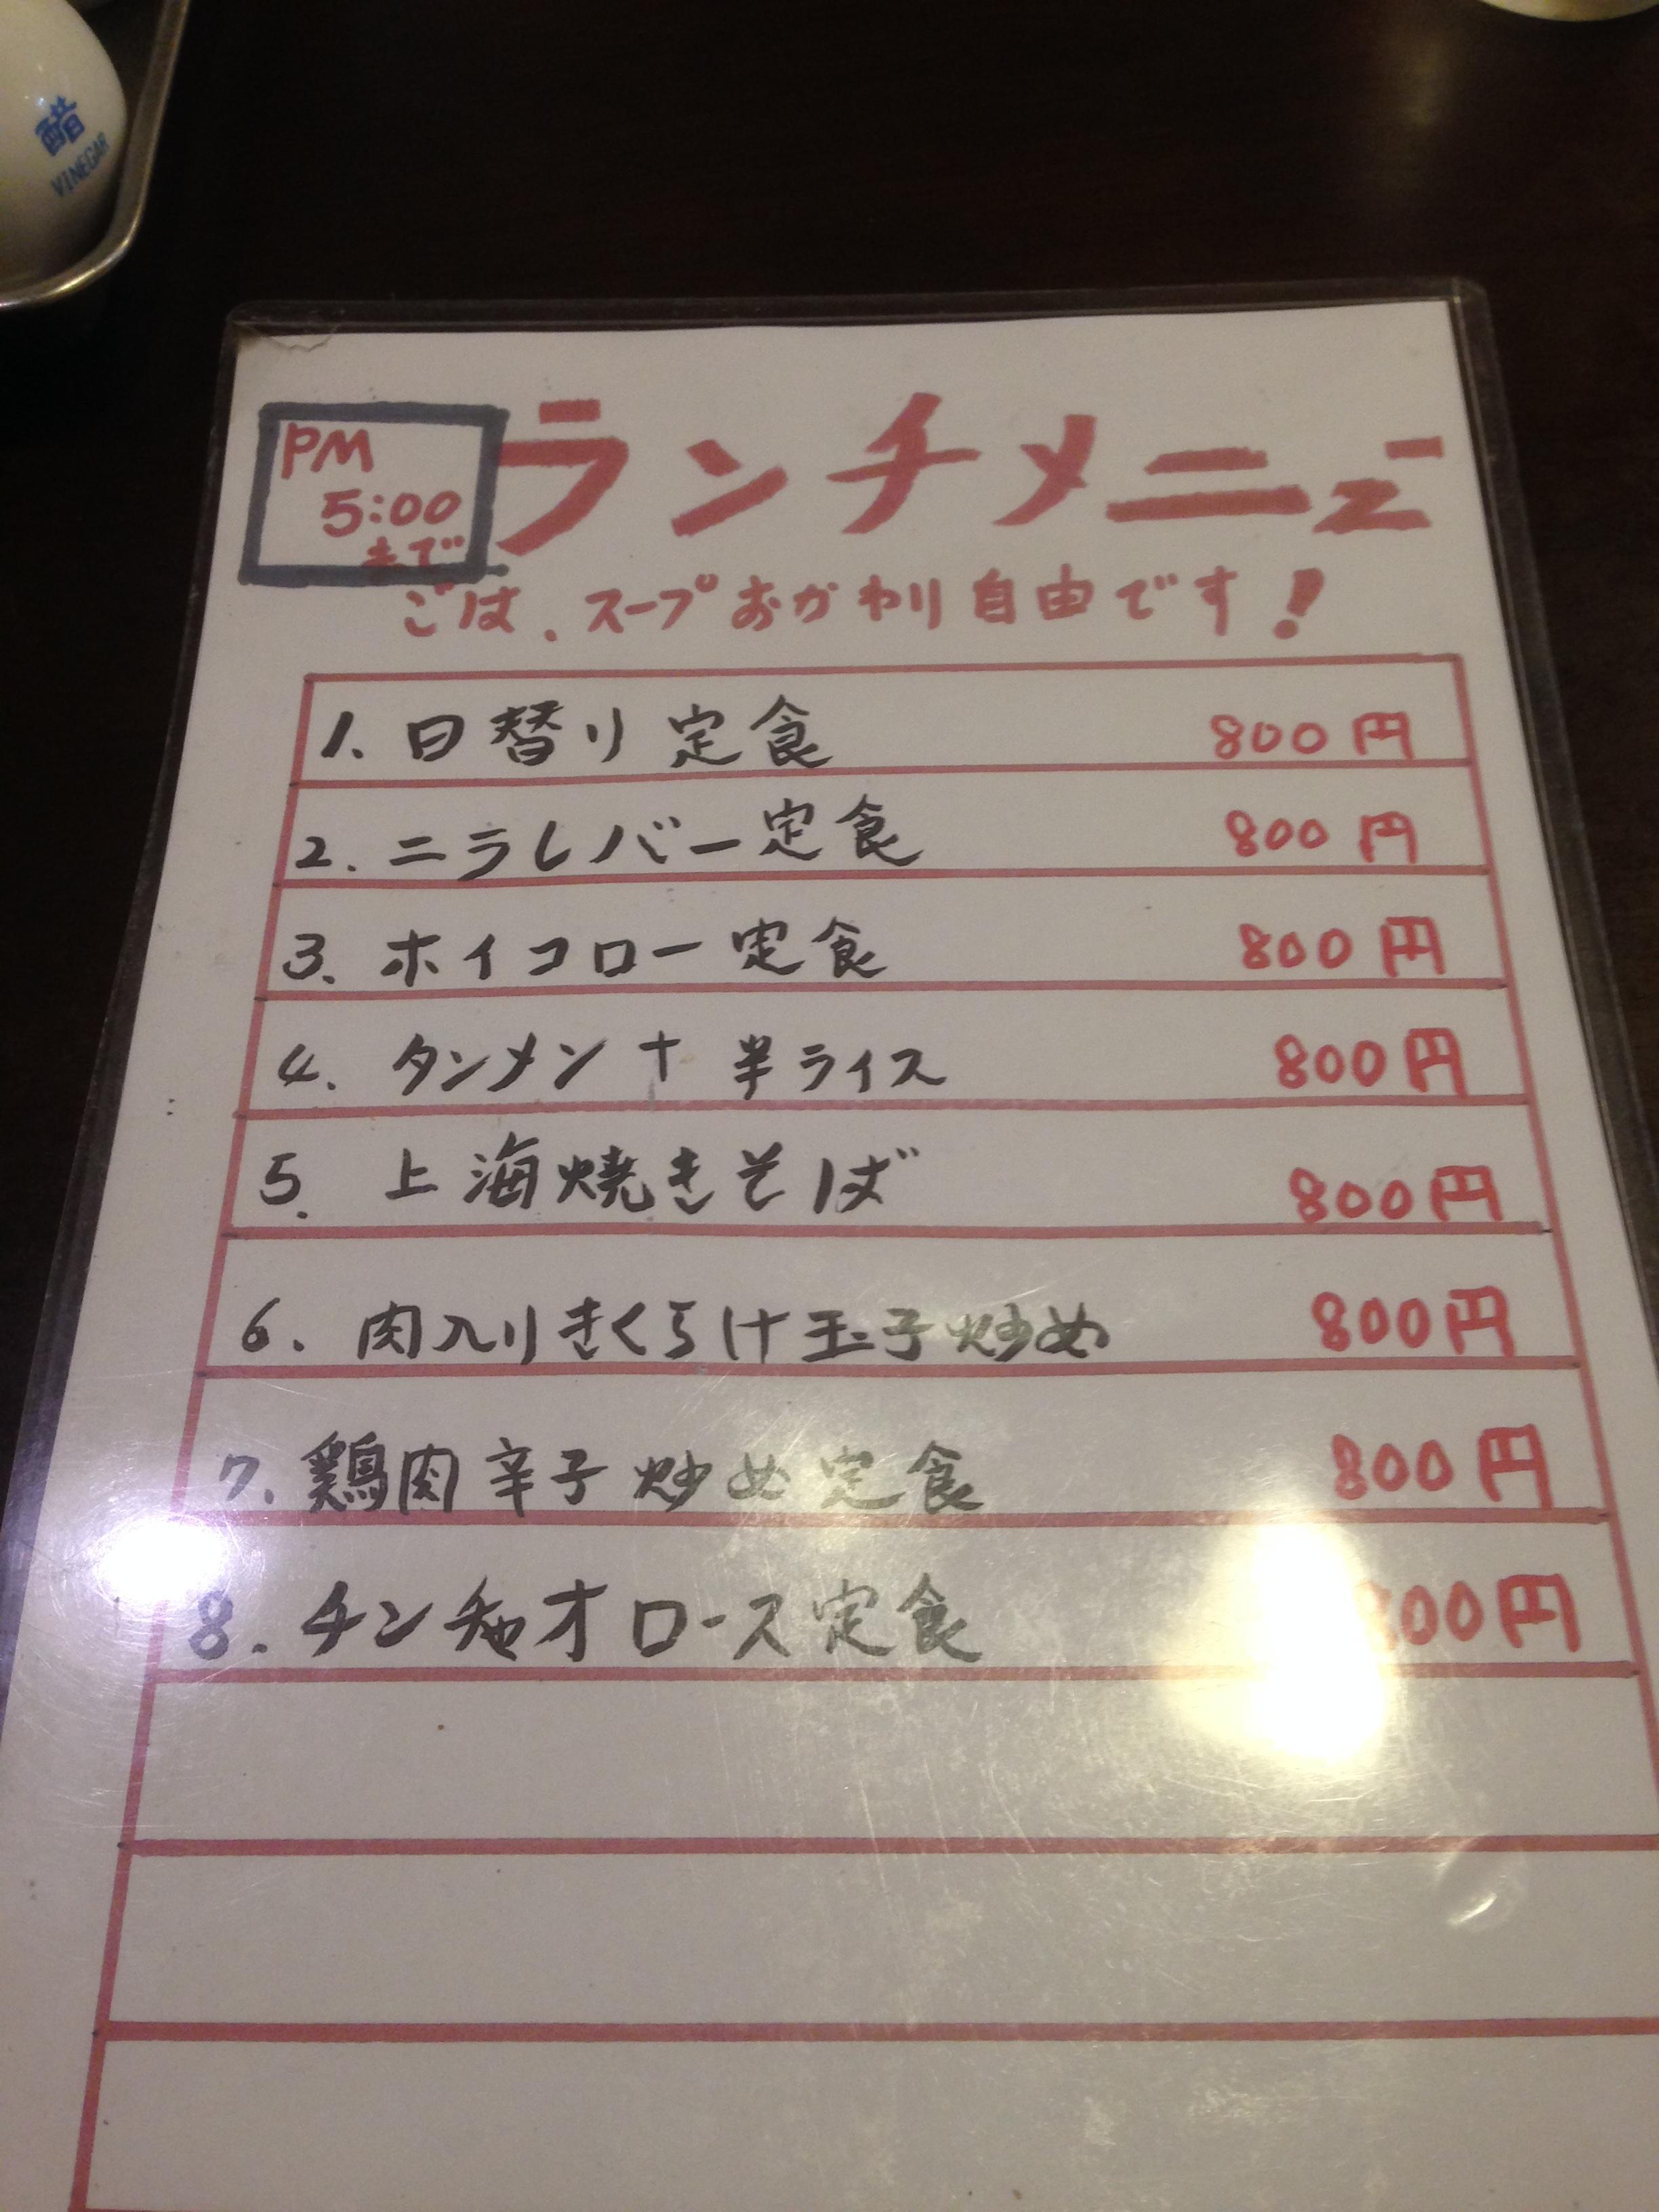 醋
VINEGAR
PM
5:00
まで
ランチメニュー
ごは、スープおかわり自由です!
1. 日替り定食 800円
2. ニラレバー定食 800円
3. ホイコロー定食 800円
4. タンメン + 半ライス 800円
5. 上海焼きそば 800円
6. 肉入りきくらげ玉子炒め 800円
7. 鶏肉辛子炒め定食 800円
8. チンヂャオロース定食 800円